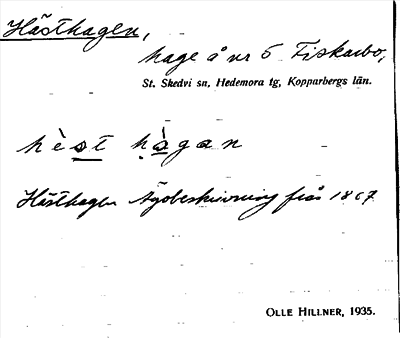 Hästhagen,
hage å nr 5 Fiskarbo,
St. Skedvi sn, Hedemora tg, Kopparbergs län.
hè̱st hà̱gan
Hästhagen Ägobeskrivning från 1867
OLLE HILLNER, 1935.